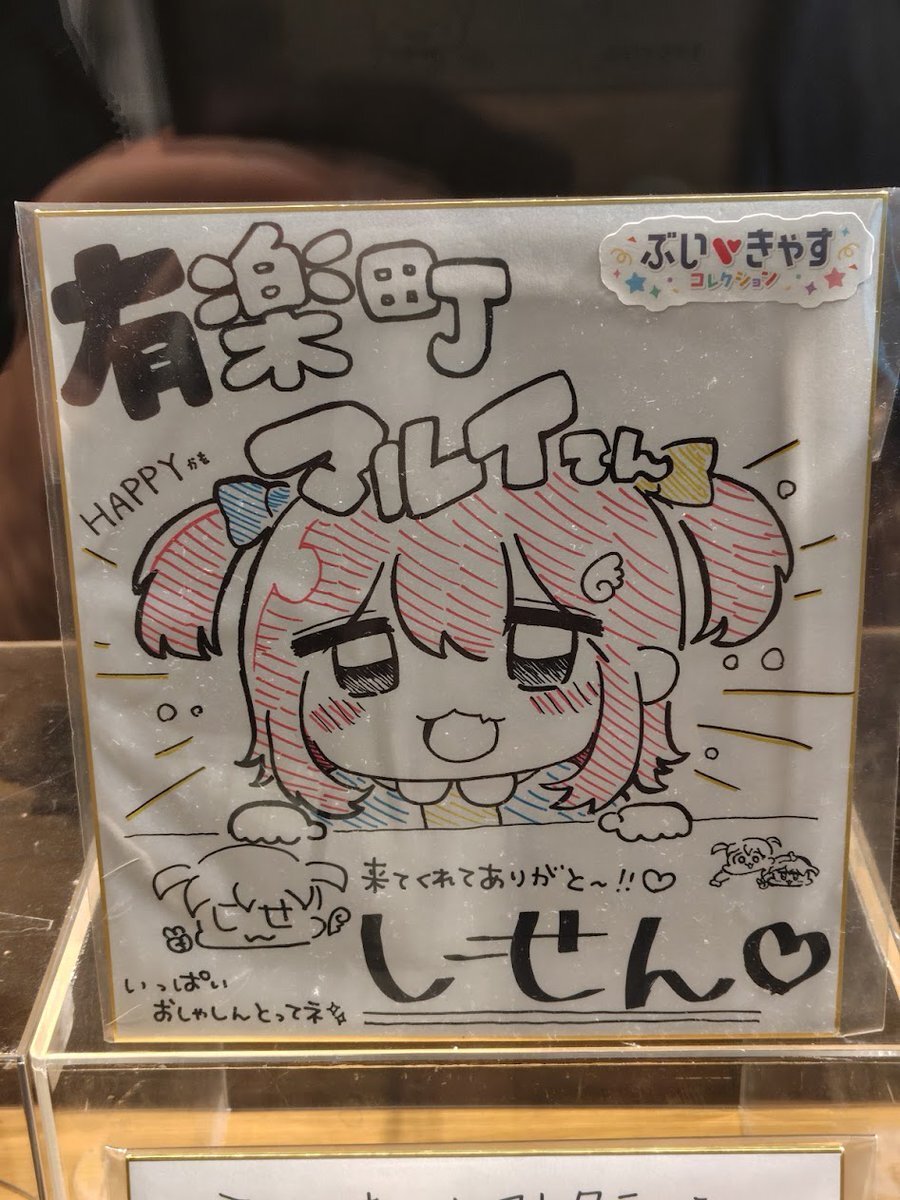 有楽町
ぶい♥きゃす
コレクション
マルイさん
HAPPYかも
来てくれてありがと〜!!♡
しせん♡
いっぱい
おしゃしんとってネ